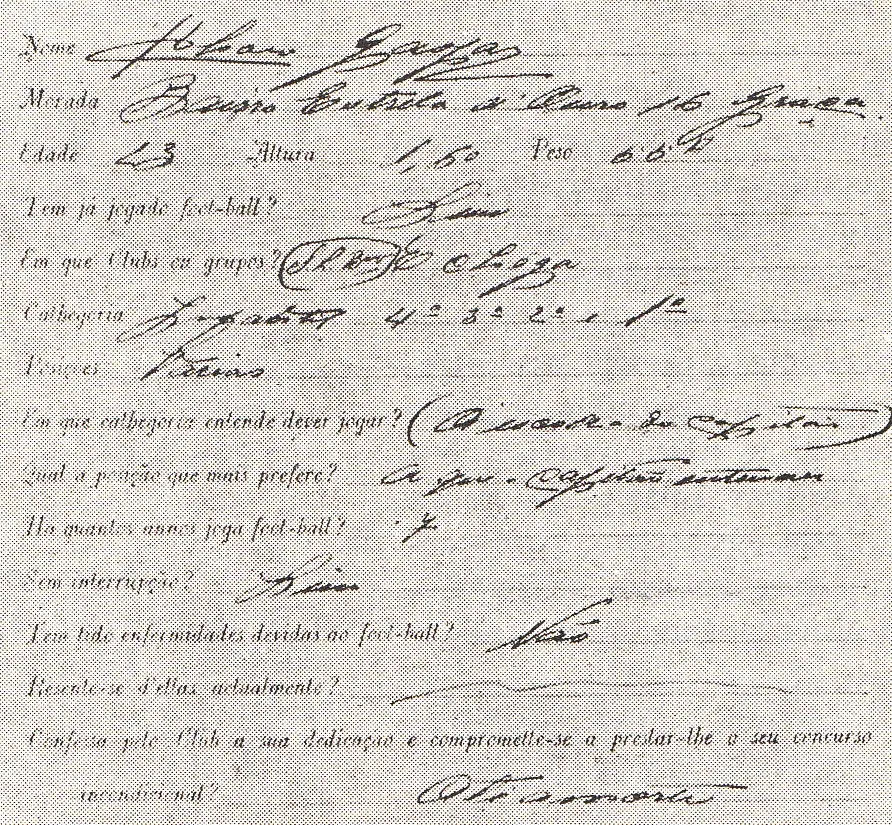 Nome Alvaro Gaspar
Morada Bairro Estrela d'Ouro 16 Graça.
Edade 23 Altura 1,60 Peso 66 k
Tem já jogado foot-ball? Sim
Em que Clubs ou grupos?
Cathegoria Infantil 4ª 3ª 2ª e 1ª
Posições Várias
Em que cathegoria entende dever jogar? (A escolha do capitão)
Qual a posição que mais prefere? A que o capitão entender
Ha quantos annos joga foot-ball? 7
Sem interrupção? Sim
Tem tido enfermidades devidas ao foot-ball? Não
Resente-se d'ellas actualmente?
Confessa pelo Club a sua dedicação e compromette-se a prestar-lhe o seu concurso
incondicional? Até á morte